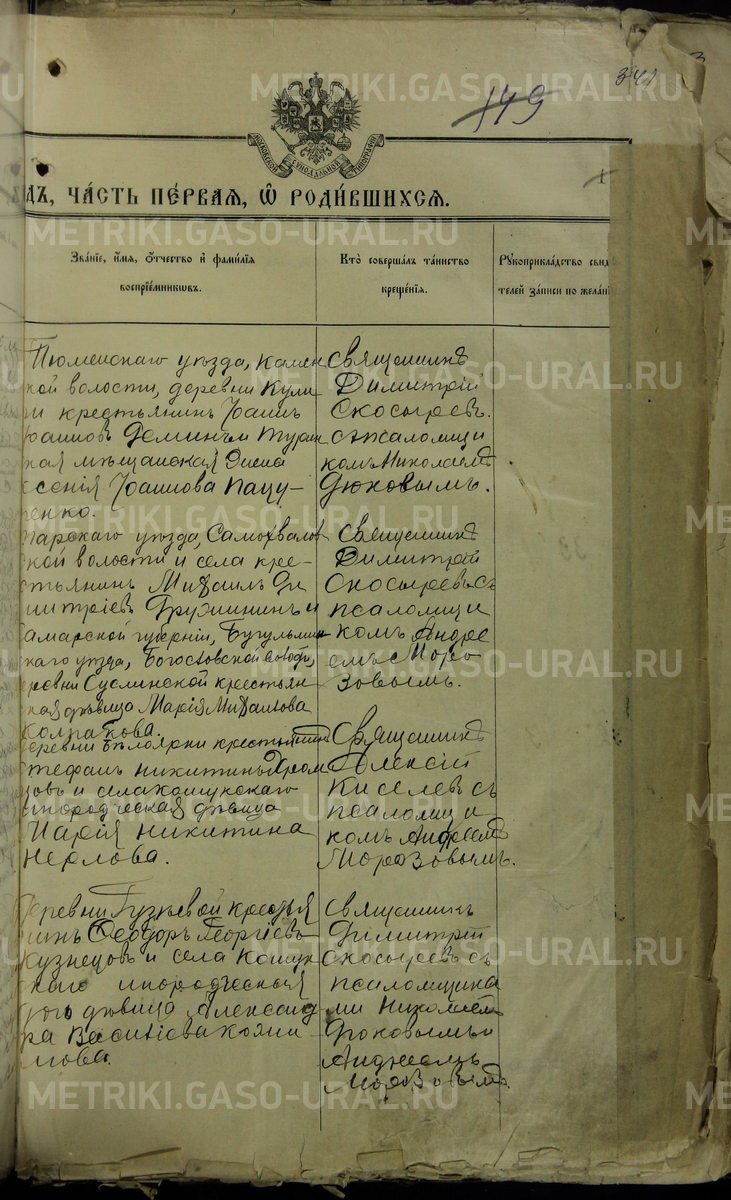 341
149
МОСКОВСКОЙ СУНОДАЛЬНОЙ ТИПОГРАФІИ
ДЪ, ЧА́СТЬ ПЕ́РВАЯ, Ѿ РОДИ́ВШИХСЯ.
Зва́ніе, и́мя, ѻ҆́тчество и҆ фами́лія
воспріе́мниковъ.
Кто̀ соверша́лъ та́инство
креще́нія.
Рꙋкоприкла́дство свид
телей за́писи по жела́ні
Тюменскаго уѣзда, Камен
кой волости, деревни Кули
крестьянинъ Іоаннъ
Іоанновъ Деминъ и Турин
кая мѣщанская
ксенія Іоаннова Пацу-
енко.
Священникъ
Димитрій
Скосыревъ
съ псаломщи
комъ Николаемъ
Дюковымъ.
уѣзда, Самохвалов
кой волости и села кре-
стьянинъ Михаилъ Ди
митріевъ Дружининъ и
амарской губерніи, Бугульмин
скаго уѣзда, Богостовской волости,
еревни Суслинской крестьян
кая дѣвица Марія Михаилова
Колпакова.
Священникъ
Димитрій
Скосыревъ съ
псаломщи
комъ Андре
емъ Моро
зовымъ.
еревни Бѣлоярки крестьянинъ
тефанъ Никитинъ Хром
цовъ и села Кошукскаго
инородческая дѣвица
Марія Никитина
Нерлова.
Священникъ
Алексій
Киселевъ съ
псаломщи
комъ Андреемъ
Морозовымъ.
еревни Гузѣевой крестья
нинъ Ѳеодоръ Георгіевъ
Кузнецовъ и села Кошук
скаго инородческая
дѣвица Александ
ра Васильева
Священникъ
Димитрій
Скосыревъ съ
псаломщика
ми Николаемъ
Дюковымъ и
Андреемъ
Морозовымъ.
METRIKI.GASO-URAL.RU